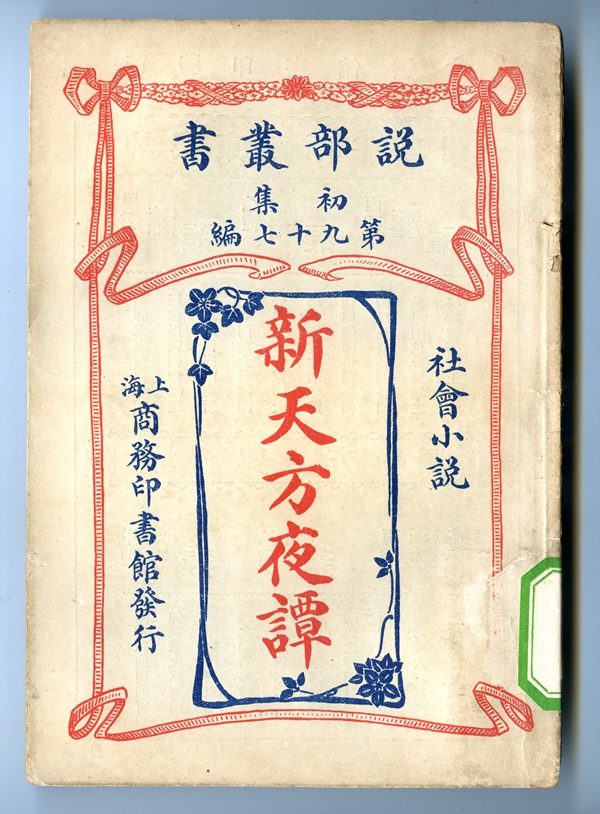 說部叢書
初集
第九十七編
社會小說
新天方夜譚
上海商務印書館發行